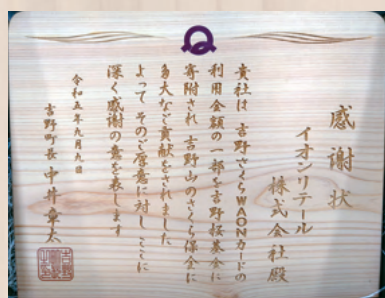 感謝状
イオンリテール
株式会社殿
貴社は 吉野さくらWAONカードの
利用金額の一部を吉野桜基金に
寄附され 吉野山のさくら保全に
多大なご貢献をされました
よって そのご厚意に対し ここに
深く感謝の意を表します
令和五年九月九日
吉野町長 中井章太